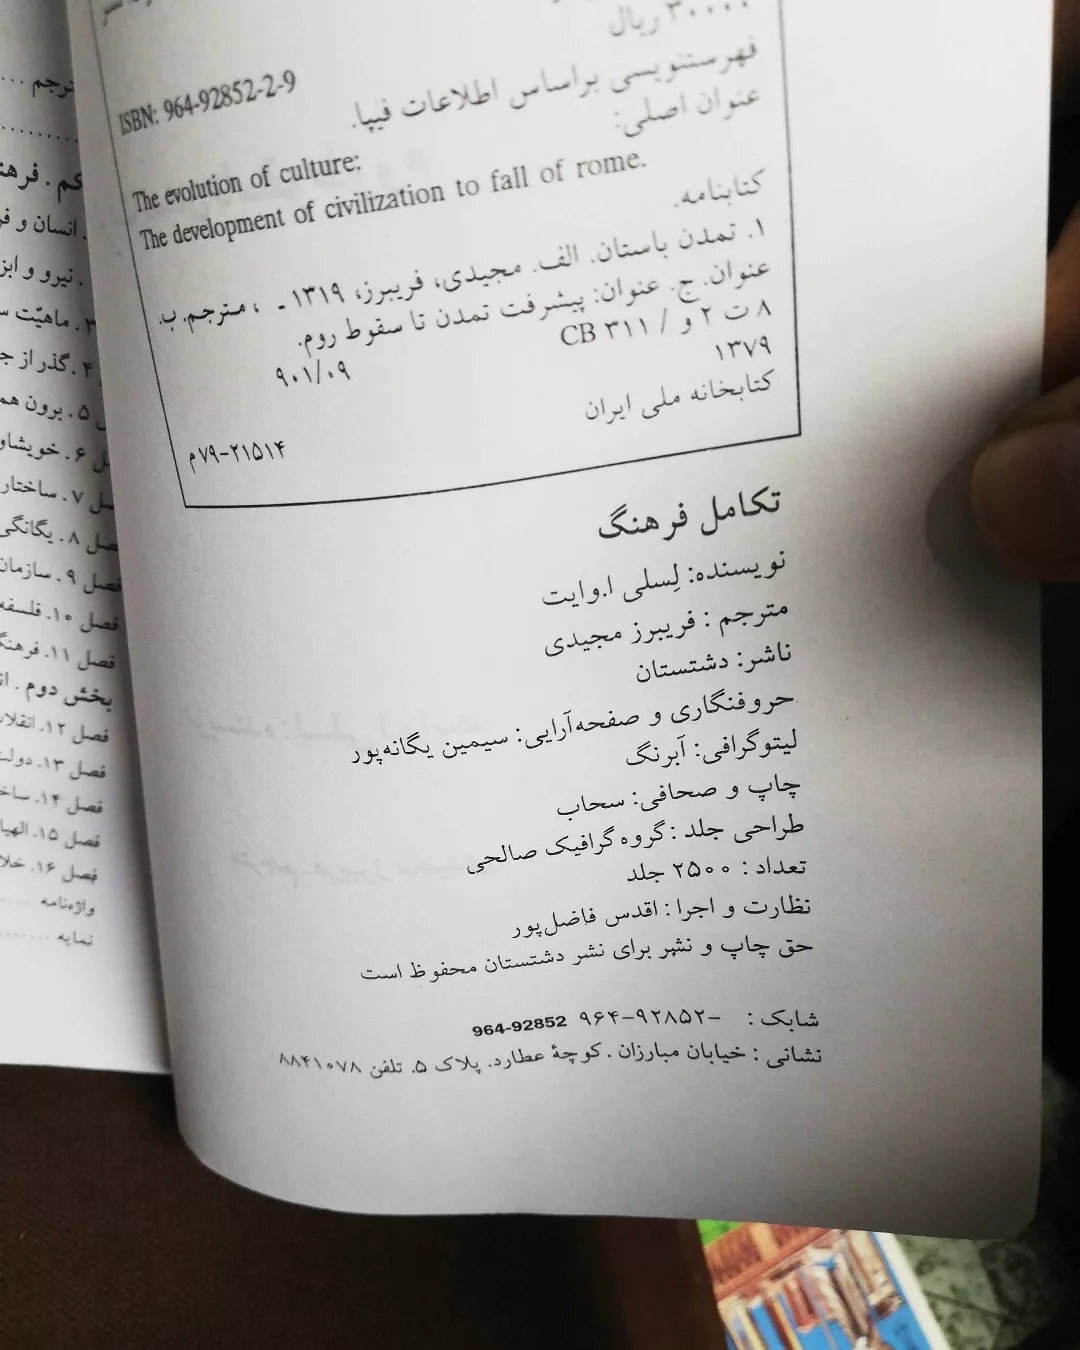 ۳۰۰۰۰ ریال
ISBN: 964-92852-2-9
فهرستنویسی براساس اطلاعات فیپا.
عنوان اصلی:
The evolution of culture:
The development of civilization to fall of rome.
کتابنامه.
۱. تمدن باستان. الف. مجیدی، فریبرز، ۱۳۱۹ ـ ، مترجم. ب.
عنوان. ج. عنوان: پیشرفت تمدن تا سقوط روم.
۸ ت ۲ و / CB ۳۱۱
۹۰۱/۰۹
۱۳۷۹
کتابخانه ملی ایران
۷۹-۲۱۵۱۴م
تکامل فرهنگ
نویسنده: لِسلی ا.وایت
مترجم : فریبرز مجیدی
ناشر: دشتستان
حروفنگاری و صفحه‌آرایی: سیمین یگانه‌پور
لیتوگرافی: آبرنگ
چاپ و صحافی: سحاب
طراحی جلد : گروه گرافیک صالحی
تعداد : ۲۵۰۰ جلد
نظارت و اجرا : اقدس فاضل‌پور
حق چاپ و نشر برای نشر دشتستان محفوظ است
شابک : ۹۶۴-۹۲۸۵۲- 964-92852
نشانی : خیابان مبارزان . کوچهٔ عطارد. پلاک ۵. تلفن ۸۸۴۱۰۷۸
انسان و
نیرو و
۳. ماهیّت
۴. گذر از
۵. برون
۶.
۷. ساختار
۸. یگانگی
فصل ۹. سازمان
فصل ۱۰. فلسفه
فصل ۱۱.
بخش دوم .
فصل ۱۲.
فصل ۱۳.
فصل ۱۴.
فصل ۱۵.
فصل ۱۶.
واژه‌نامه
نمایه